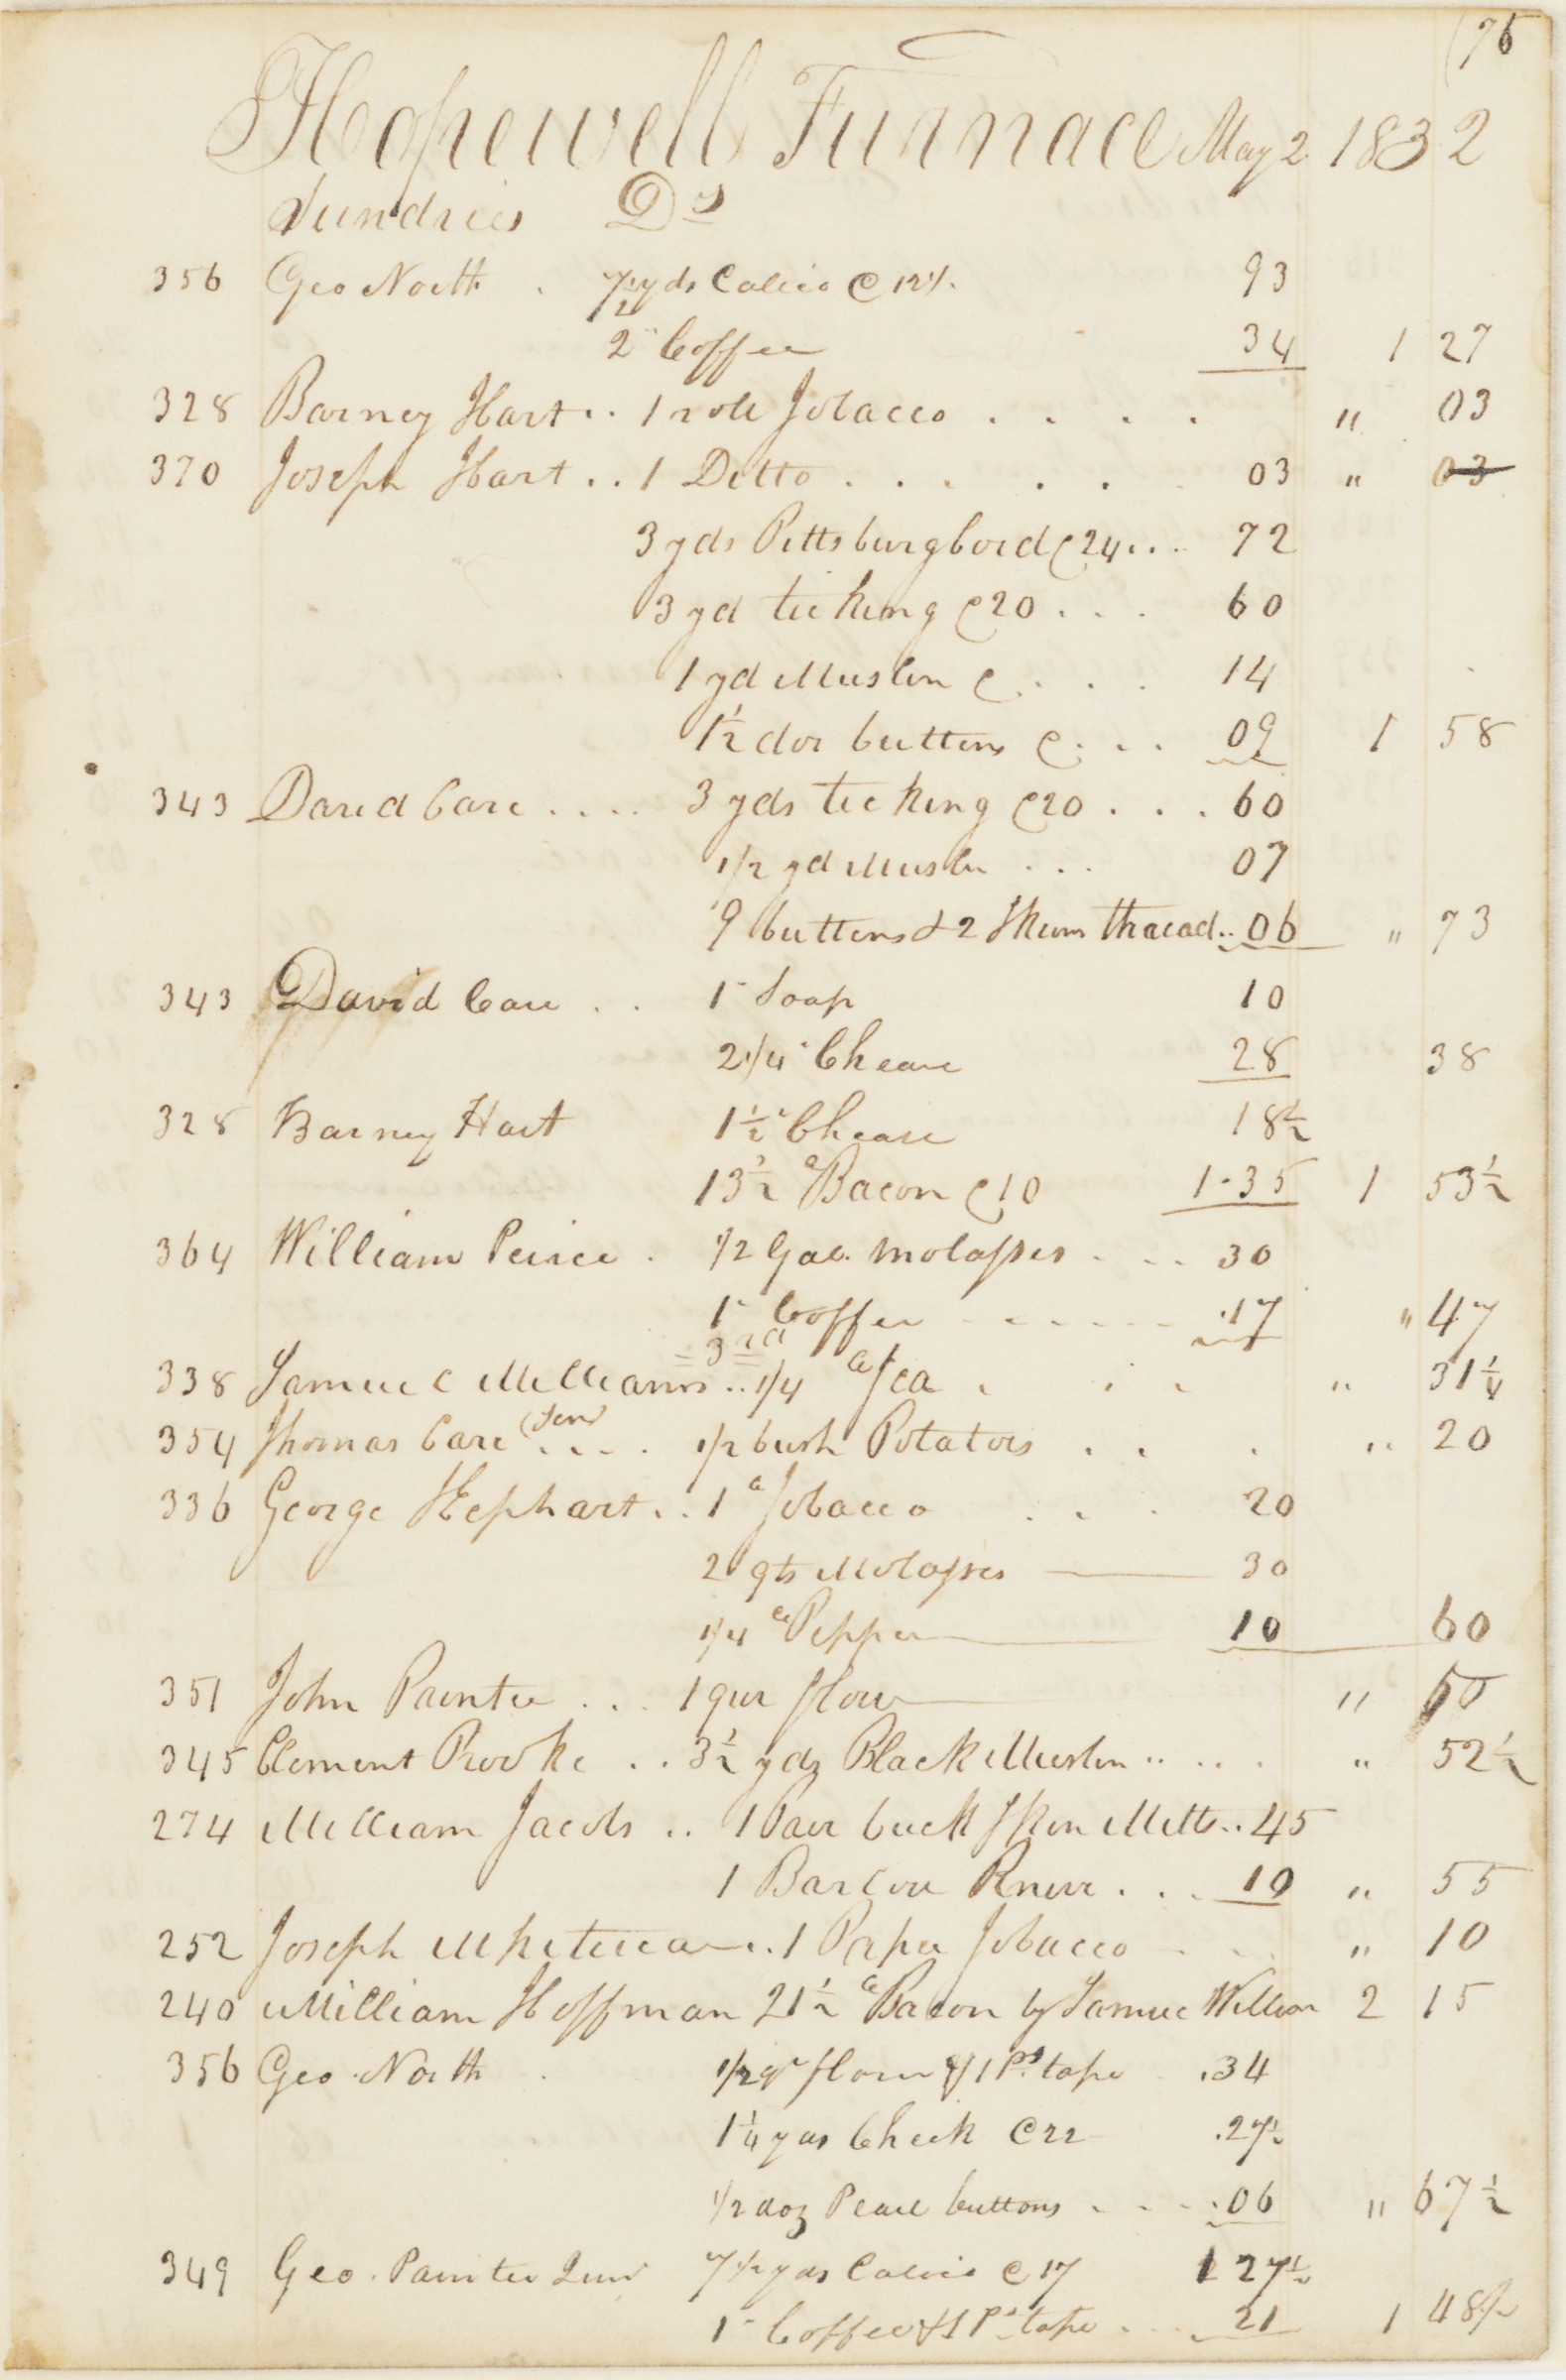 75
Hopewell Furnace May 2 1832
Sundries Drs
356 Geo North . 7 1/2 yds Calico @ 12 1/2 . 93
2 " Coffee 34 1 27
328 Barney Hart .. 1 role Tobacco . . . . " 03
370 Joseph Hart .. 1 Ditto . . . . . 03 " 03
3 yds Pittsburg Cord @ 24 ... 72
3 yd ticking @ 20 . . . 60
1 yd Muslin @ . . . 14
1 1/2 doz buttens @ . . . 09 1 58
343 David Care .... 3 yds ticking @ 20 . . . 60
1/2 yd Muslin . . . 07
9 buttens & 2 Skein thread .. 06 " 73
343 David Care . . 1 " Soap 10
2 1/4 " Chease 28 38
328 Barney Hart 1 1/2 " Chease 18 1/2
13 1/2 " Bacon @ 10 1.35 1 53 1/2
364 William Peirce . 1/2 Gal. Molasses . . . . 30
1 " Coffee - - - - - - .17 " 47
= 3rd =
338 Samuel Williams .. 1/4 " Tea . . . " 31 1/4
354 Thomas Care (Sen) .... 1/2 bush Potatoes . . . " 20
336 George Hephart .. 1 " Tobacco . . . 20
2 qts Molasses 30
1/4 " Pepper 10 60
351 John Painter . . . 1 qur flour " 50
345 Clement Rooke . . 3 1/2 yds Black Muslin .. . . . " 52 1/2
274 William Jacobs .. 1 Pair buck Skin Mitts .. 45
1 Barlow Knive . . . 10 " 55
252 Joseph Whiteman .. 1 Paper Tobacco - . . " 10
240 William Hoffman 21 1/2 " Bacon by Samuel William 2 15
356 Geo. North . 1/2 qr flour & 1 Ps. tape .34
1 1/4 yds Check @ 22 .27 1/2
1/2 doz Pearl buttons . - - .06 " 67 1/2
349 Geo. Painter Junr 7 1/2 yds Calico @ 17 1 27 1/2
1 " Coffee & 1 Ps. tape . . . 21 1 48 1/2